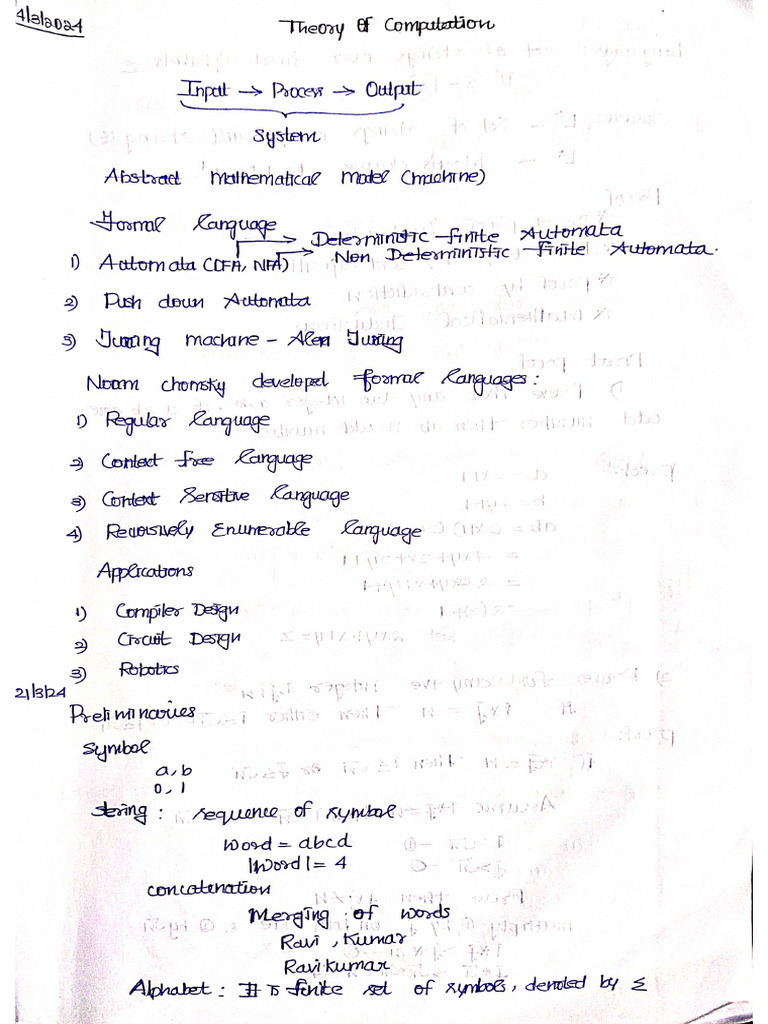 4/3/2024
Theory Of Computation
Input → Process → Output
System
Abstract Mathematical Model (machine)
Formal Language
Deterministic finite Automata
1) Automata (DFA, NFA) Non Deterministic finite Automata.
2) Push down Automata
3) Turing machine - Alen Turing
Noam chomsky developed formal languages:
1) Regular Language
2) Context free Language
3) Context Sensitive Language
4) Recursively Enumerable language
Applications
1) Compiler Design
2) Circuit Design
3) Robotics
21/3/24
Preliminaries
Symbol
a, b
0, 1
string: sequence of symbol
Word = abcd
|Word| = 4
concatenation
Merging of words
Ravi, Kumar
Ravikumar
Alphabet: It is finite set of symbols, denoted by Σ